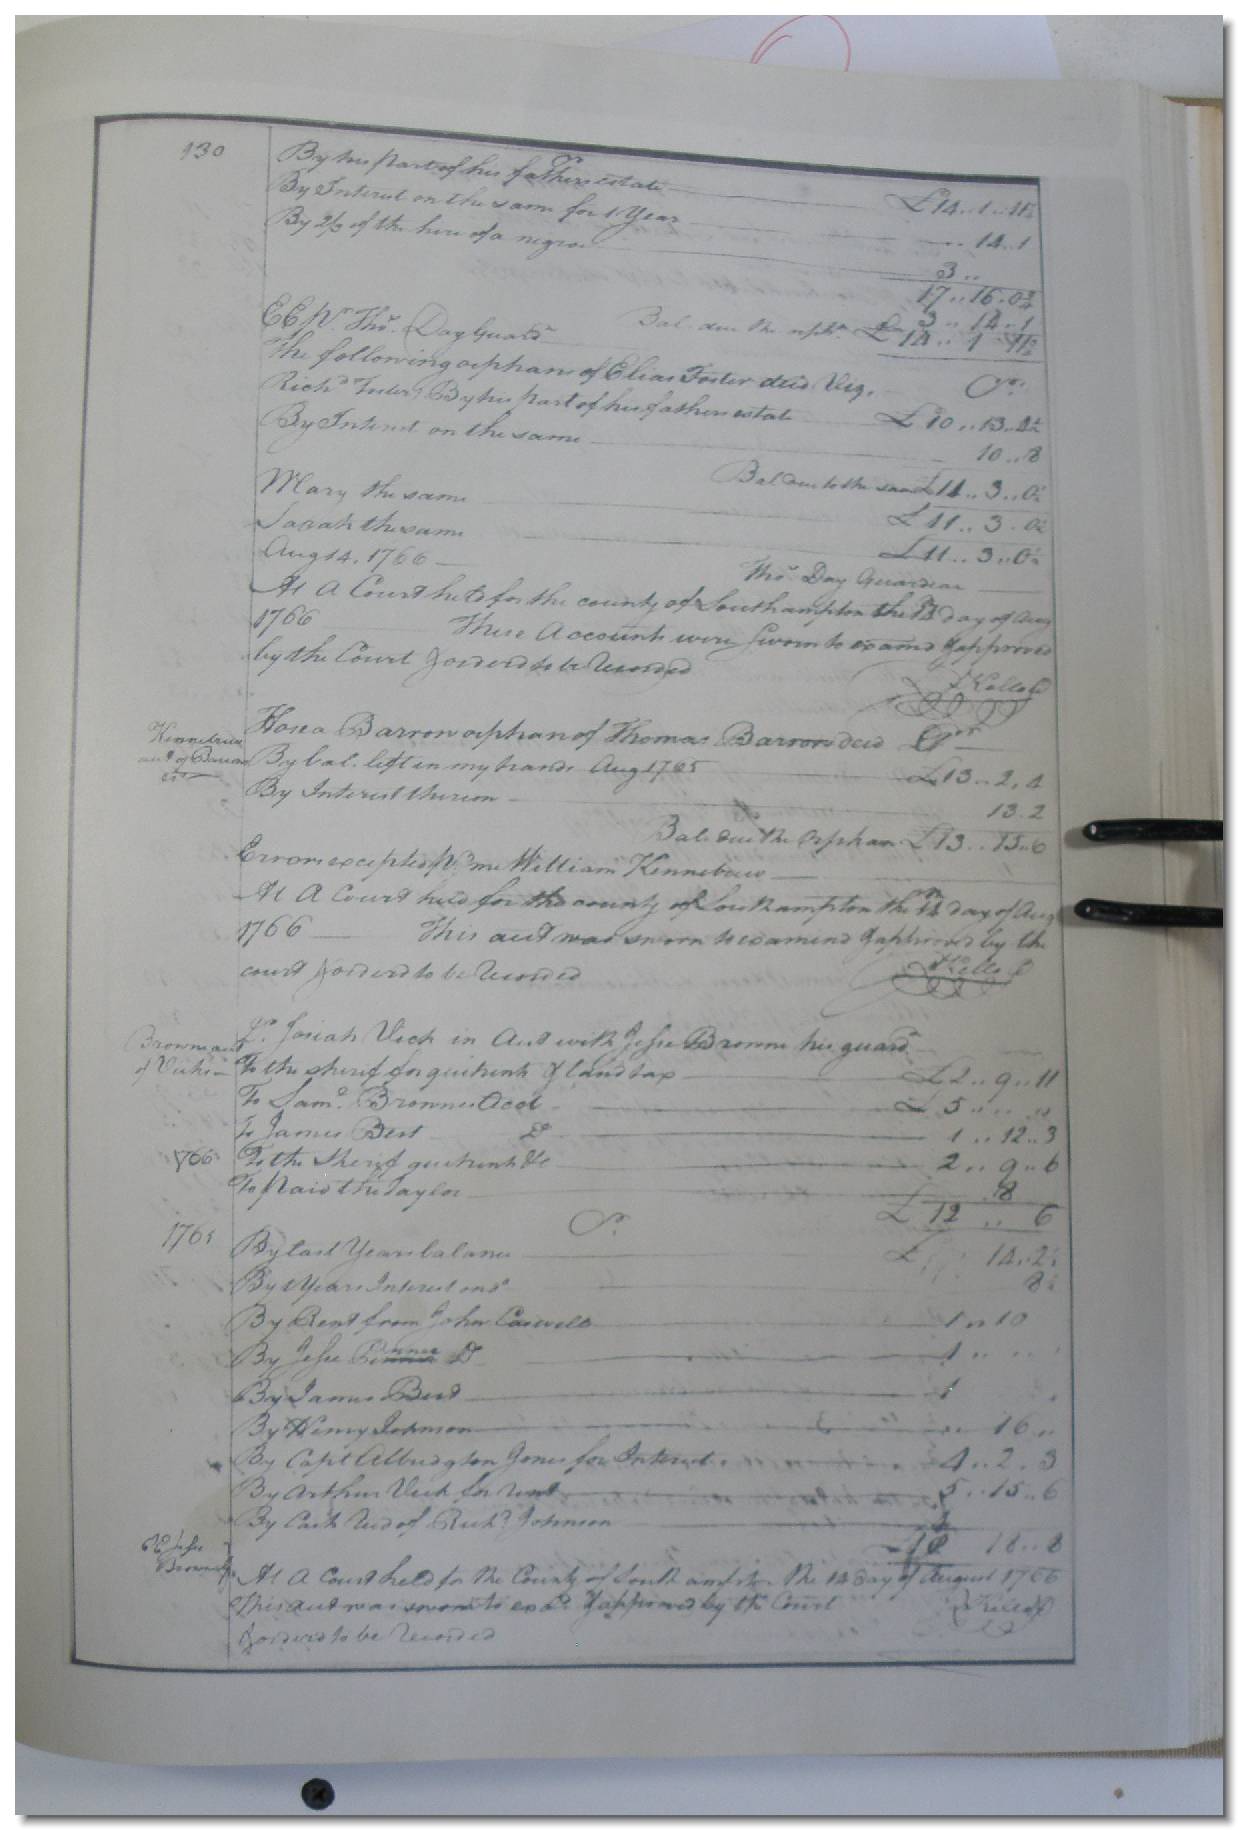 130
Cr
By his part of his fathers estate £14..1..11½
By Interest on the same for 1 Year .. 14..1
By 2/3 of the hire of a negroe 3 ..
17..16..0¾
3..14..1
EE Pr. Thos. Day Guardn Bal. due the orphn. £14..1..11¾
The following orphans of Elias Foster decd Viz. Cr.
Richd Foster By his part of his fathers estate £10..13..2½
By Interest on the same 10..8
Bal due to the same £11..3..0½
Mary the same £11..3..0½
Sarah the same £11..3..0½
Aug 14. 1766 Thos. Day Guardian
At A Court held for the county of Southampton the 14 day of Aug
1766 These Accounts were sworn to examd & approved
by the Court & orderd to be Recorded
Hosea Barron orphan of Thomas Barron decd Cr
Kennebrew
acct of Barron
By bal. left in my hands Aug 1765 £13..2..4
By Interest thereon 13..2
Bal. due the Orphan £13..15..6
Errors excepted pr. me William Kennebrew
At A Court held for the county of Southampton the 14 day of Aug
1766 This acct was sworn to examend & approved by the
court & orderd to be Recorded
Dr. Josiah Vick in Acct with Jesse Browne his guard
Browns acct
of Vicks
To the sherif for quitrents & land tax £2..9..11
To Saml. Brownes Acct £5.. ..
To James Best Do 1..12..3
1766 To the Sherif quitrents &c 2..9..6
To paid the Taylor 8
£12.. 6
Cr.
1765 By last Years balance £ 14..2½
By 1 Years Interest on do 8½
By Rent from John Carvell 1..10
By Jesse Browne Do 1.. ..
By James Best 1
By Henry Johnson .. 16..
By Capt Albridgton Jones for Interest 4..2..3
By Arthur Vick for rent 5..15..6
By Cash Recd of Richd. Johnson
18..8
EE Jesse
Browne
At A Court held for the County of Southampton the 14 day of August 1766
This acct was sworn to exad. & approved by the Court
& orderd to be Recorded